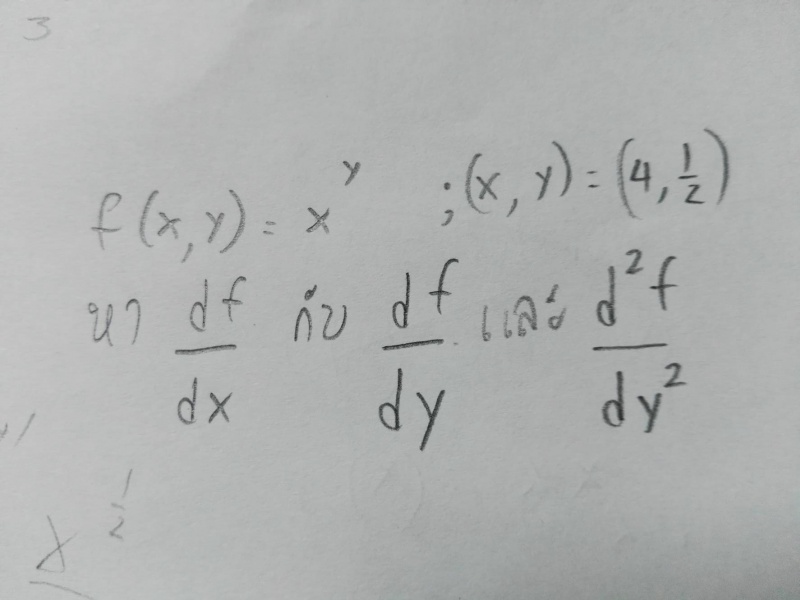 3
f(x,y) = x^y ; (x, y) = (4, 1/2)
หา df/dx กับ df/dy และ d²f/dy²
x^1/2